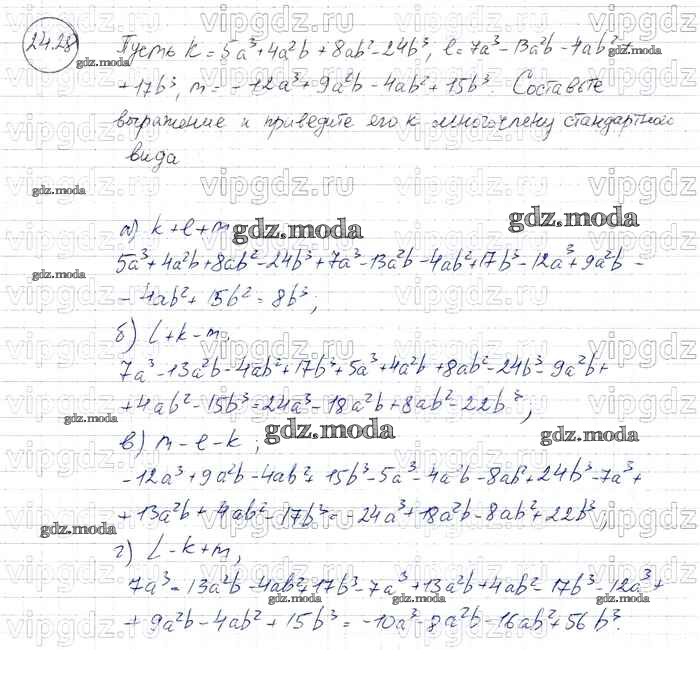 24.28
Пусть k = 5a³+4a²b+8ab²-24b³, l = 7a³-13a²b-4ab²+
+17b³, m = -12a³+9a²b-4ab²+15b³. Составьте
выражение и приведите его к многочлену стандартного
вида
а) k+l+m
5a³+4a²b+8ab²-24b³+7a³-13a²b-4ab²+17b³-12a³+9a²b-
-4ab²+15b²=8b³;
б) l+k-m;
7a³-13a²b-4ab²+17b³+5a³+4a²b+8ab²-24b³-9a²b+
+4ab²-15b³=24a³-18a²b+8ab²-22b³,
в) m-l-k;
-12a³+9a²b-4ab²+15b³-5a³-4a²b-8ab²+24b³-7a³+
+13a²b+4ab²-17b³=-24a³+18a²b-8ab²+22b³
г) l-k+m,
7a³-13a²b-4ab²+17b³-7a³+13a²b+4ab²-17b³-12a³+
+9a²b-4ab²+15b³=-10a³-8a²b-16ab²+56b³.
gdz.moda
vipgdz.ru